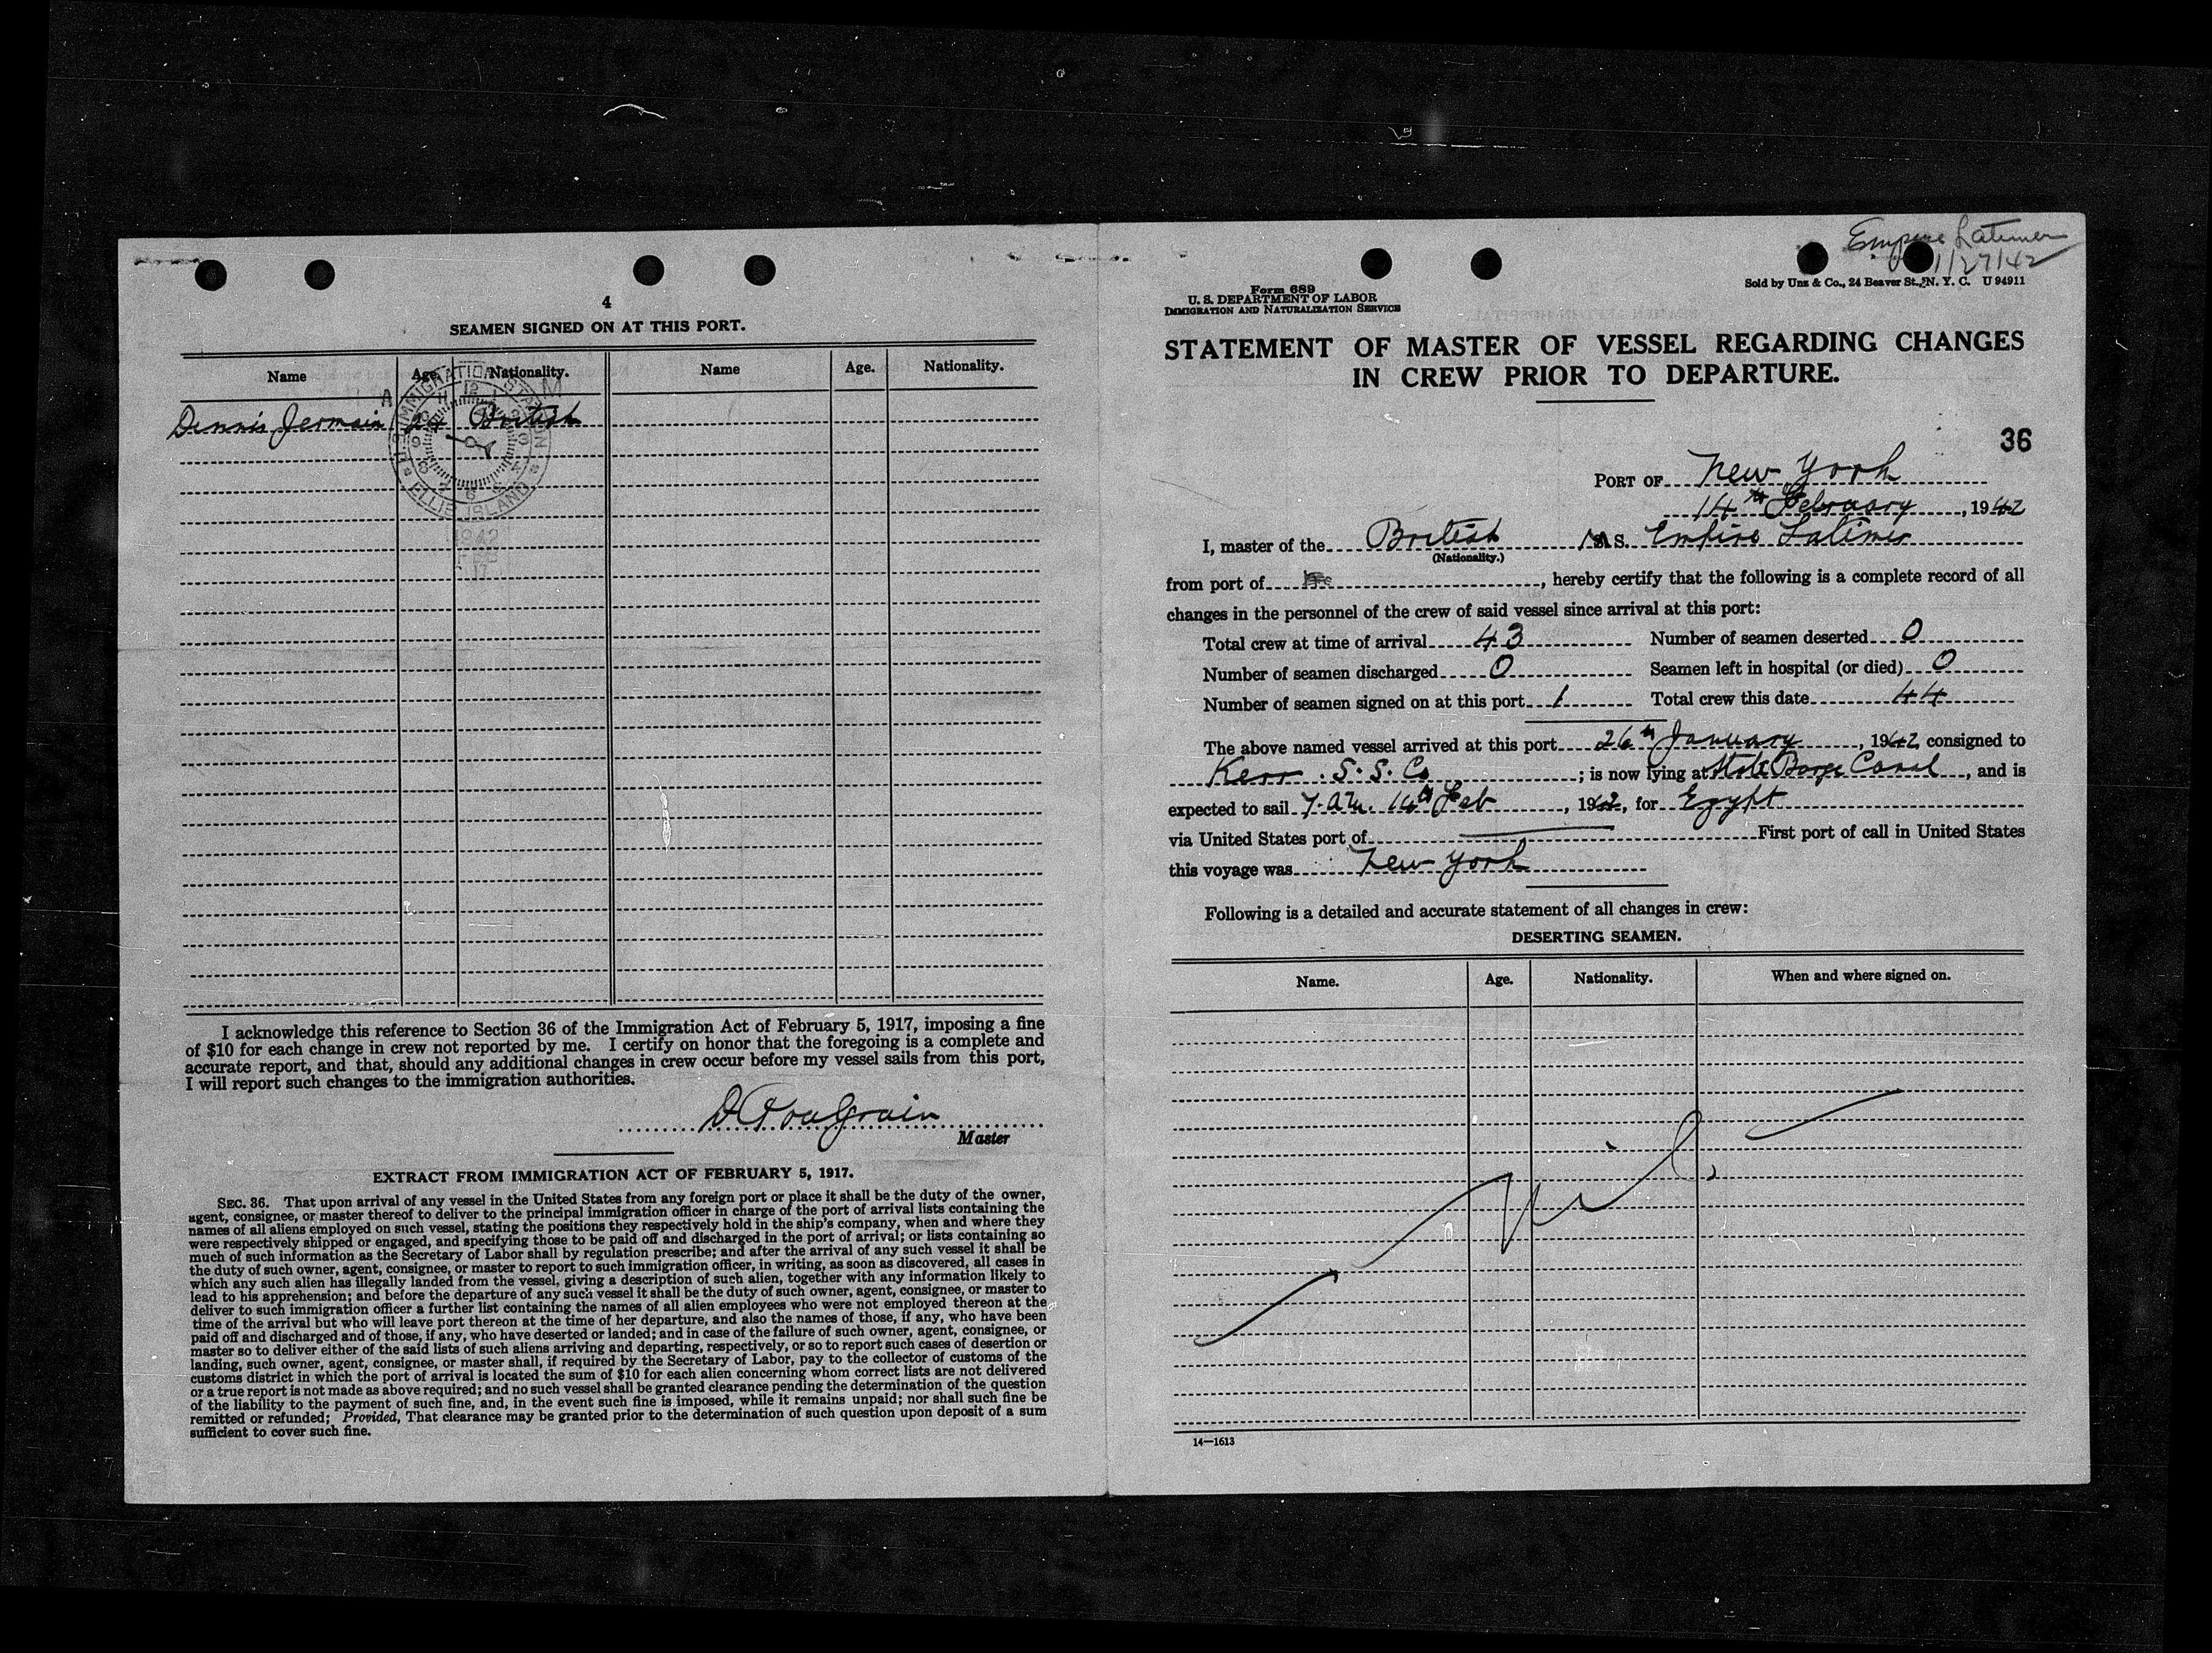 4
SEAMEN SIGNED ON AT THIS PORT.
Name Age. Nationality. Name Age. Nationality.
Dennis Jermain 24 British
A M
U.S. IMMIGRATION STATION
ELLIS ISLAND
1942
FEB
17
I acknowledge this reference to Section 36 of the Immigration Act of February 5, 1917, imposing a fine
of $10 for each change in crew not reported by me. I certify on honor that the foregoing is a complete and
accurate report, and that, should any additional changes in crew occur before my vessel sails from this port,
I will report such changes to the immigration authorities.
Master
EXTRACT FROM IMMIGRATION ACT OF FEBRUARY 5, 1917.
SEC. 36. That upon arrival of any vessel in the United States from any foreign port or place it shall be the duty of the owner,
agent, consignee, or master thereof to deliver to the principal immigration officer in charge of the port of arrival lists containing the
names of all aliens employed on such vessel, stating the positions they respectively hold in the ship's company, when and where they
were respectively shipped or engaged, and specifying those to be paid off and discharged in the port of arrival; or lists containing so
much of such information as the Secretary of Labor shall by regulation prescribe; and after the arrival of any such vessel it shall be
the duty of such owner, agent, consignee, or master to report to such immigration officer, in writing, as soon as discovered, all cases in
which any such alien has illegally landed from the vessel, giving a description of such alien, together with any information likely to
lead to his apprehension; and before the departure of any such vessel it shall be the duty of such owner, agent, consignee, or master to
deliver to such immigration officer a further list containing the names of all alien employees who were not employed thereon at the
time of the arrival but who will leave port thereon at the time of her departure, and also the names of those, if any, who have been
paid off and discharged and of those, if any, who have deserted or landed; and in case of the failure of such owner, agent, consignee, or
master so to deliver either of the said lists of such aliens arriving and departing, respectively, or so to report such cases of desertion or
landing, such owner, agent, consignee, or master shall, if required by the Secretary of Labor, pay to the collector of customs of the
customs district in which the port of arrival is located the sum of $10 for each alien concerning whom correct lists are not delivered
or a true report is not made as above required; and no such vessel shall be granted clearance pending the determination of the question
of the liability to the payment of such fine, and, in the event such fine is imposed, while it remains unpaid; nor shall such fine be
remitted or refunded; Provided, That clearance may be granted prior to the determination of such question upon deposit of a sum
sufficient to cover such fine.
Empire Latimer
1/27/42
Sold by Unz & Co., 24 Beaver St., N. Y. C. U 94911
Form 689
U. S. DEPARTMENT OF LABOR
IMMIGRATION AND NATURALIZATION SERVICE
STATEMENT OF MASTER OF VESSEL REGARDING CHANGES
IN CREW PRIOR TO DEPARTURE.
36
PORT OF New York
14th February, 1942
I, master of the British S. Empire Latimer
(Nationality.)
from port of , hereby certify that the following is a complete record of all
changes in the personnel of the crew of said vessel since arrival at this port:
Total crew at time of arrival 43 Number of seamen deserted 0
Number of seamen discharged 0 Seamen left in hospital (or died) 0
Number of seamen signed on at this port 1 Total crew this date 44
The above named vessel arrived at this port 26th January, 1942, consigned to
Kerr S.S. Co ; is now lying at State Barge Canal, and is
expected to sail 7 A.M. 14th Feb, 1942, for Egypt
via United States port of First port of call in United States
this voyage was New York
Following is a detailed and accurate statement of all changes in crew:
DESERTING SEAMEN.
Name. Age. Nationality. When and where signed on.
Nil
14—1613